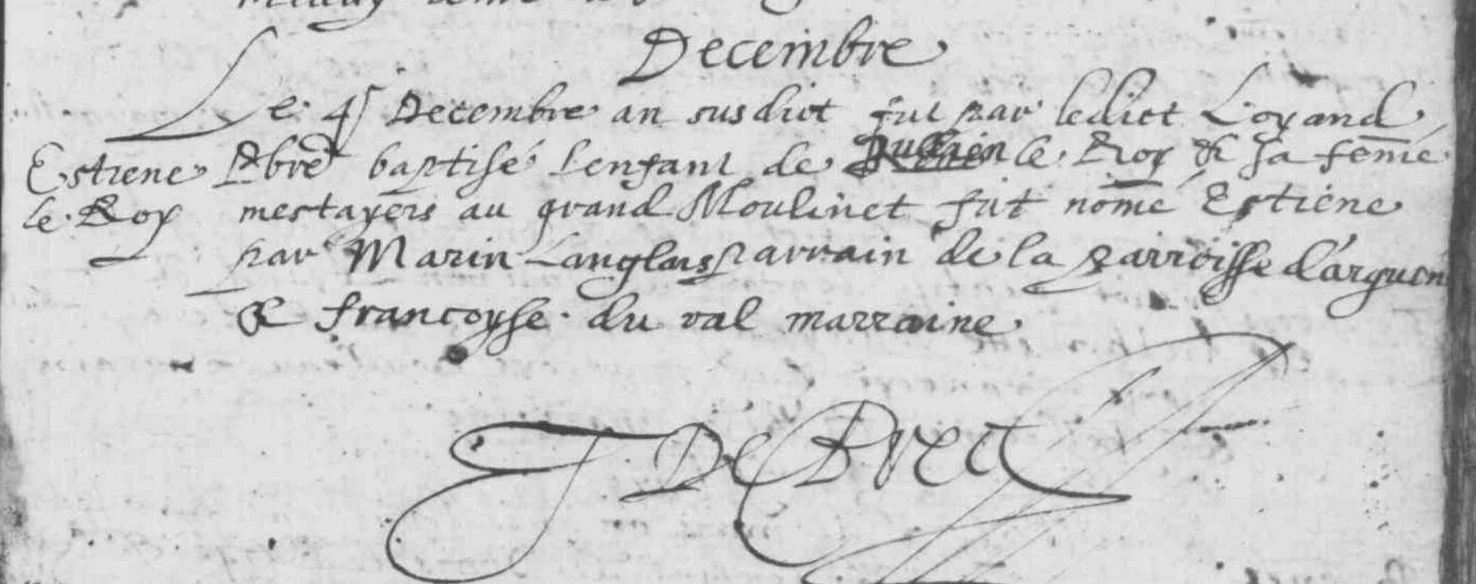 Decembre
Le 4 Decembre an susdict fut par ledict Loyand
Estiene Pbre baptisé l'enfant de Jullien le Roy & sa feme
le Roy mestayers au grand Moulinet fut nomé Estiene
par Marin Langlais parrain de la parroisse d'arguen
& francoyse du val marraine